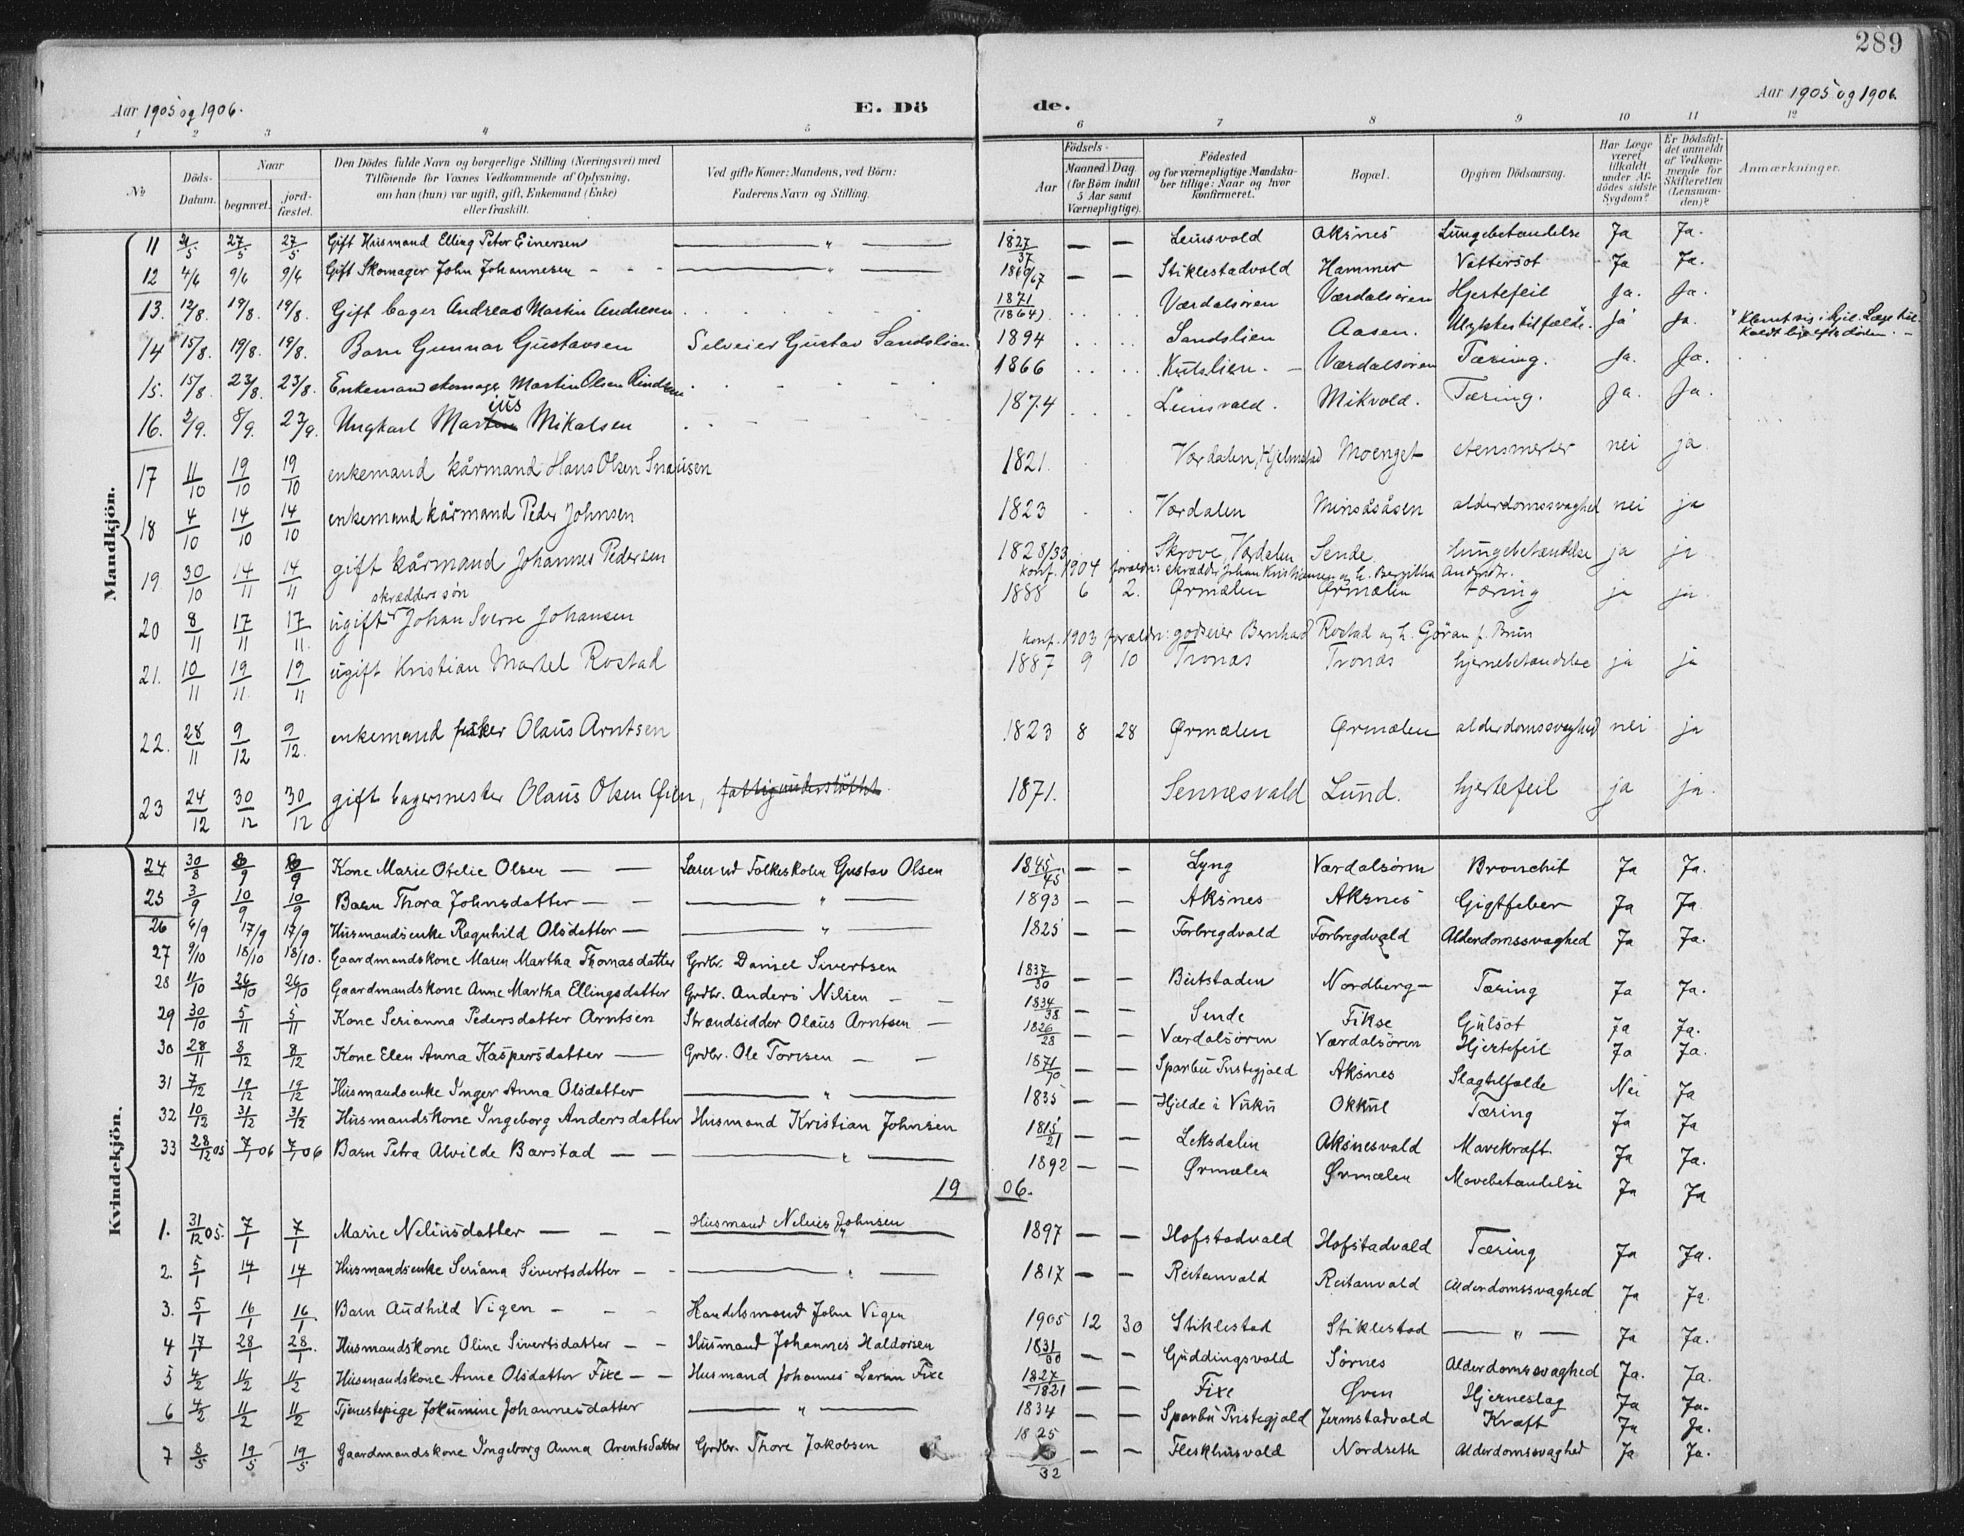 289
Aar 1905 og 1906. E. Dö de. Aar 1905 og 1906.
1 2 3 4 5 6 7 8 9 10 11 12
No Döds-Datum. Naar begravet. jordfæstet. Den Dödes fulde Navn og borgerlige Stilling (Næringsvei) med Tilföiende for Voxnes Vedkommende af Oplysning, om han (hun) var ugift, gift, Enkemand (Enke) eller fraskilt. Ved gifte Koner: Mandens, ved Börn: Faderens Navn og Stilling. Födsels- Aar Maaned Dag (for Börn indtil 5 Aar samt Værnepligtige). Födested og for værnepligtige Mandskaber tillige: Naar og hvor konfirmeret. Bopæl. Opgiven Dödsaarsag. Har Læge været tilkaldt under Afdödes sidste Sygdom? Er Dödsfaldet anmeldt af Vedkommende for Skifteretten (Lensmanden)? Anmærkninger.
Mandkjön.
11 21/5 27/5 27/5 Gift Husmand Elling Peter Einersen — " — 1827/37 — — Leinsvald Aksnes Lungebetændelse Ja Ja.
12 4/6 9/6 9/6 Gift Skomager John Johannesen - - - — " — 1860/67 — — Stiklestadvald Hammer Vattersot Ja Ja.
13. 12/8. 19/8. 19/8. Gift bager Andreas Martin Andresen 1871 (1864) Værdalsøren Værdalsøren Hjertefeil Ja. Ja.
14 15/8. 19/8. 19/8. Barn Gunnar Gustavsen Selveier Gustav Sandslien 1894 Sandslien Aasen. Ulykkestilfælde. ja Ja. Klemt sig i hjel. Læge tilkaldt døden. —
15. 15/8. 23/8. 23/8. Enkemand skomager Martin Olsen Rindsem 1866 Kulslien. — Værdalsøren Tæring. Ja. Ja.
16. 3/9. 8/9. 23/9. Ungkarl Martinius Mikalsen 1874 Leinsvald. Mikvold. Tæring. Ja. Ja.
17 11/10 19/10 19/10 enkemand kårmand Hans Olsen Snausen 1821. Værdalen, Hjelmstad Moenget stensmerter nei ja
18 4/10 14/10 14/10 enkemand kårmand Peder Johnsen 1823 Værdalen Minsåsåsen alderdomssvaghed nei ja
19 30/10 14/11 14/11 gift kårmand Johannes Pedersen 1828/33 Skrove, Værdalen Sende lungebetændelse ja ja
konf. 1904 foreldr: skrædder Johan Kristiansen og h. Bergitha Andrsdr.
skrædders søn
20 8/11 17/11 17/11. ugift Johan Sverre Johansen 1888 6 2. Ørmælen Ørmælen tæring ja ja.
konf. 1903 foreldr: godseier Bernhard Rostad og h. Göran f. Brun
21. 10/11 19/11. 19/11 ugift Kristian Martel Rostad 1887 9 10 Trones Trones hjernebetændelse ja ja
22. 28/11 9/12 9/12. enkemand fisker Olaus Arntsen 1823 8 28 Ørmælen Ørmælen alderdomssvaghed nei ja
23 24/12 30/12 30/12 gift bagermester Olaus Olsen Øien, fattigunderstöttet 1871. Sennesvald Lund. hjertefeil ja ja.
Kvindekjön.
24 30/8 8/9 8/9 Kone Marie Otelie Olsen — — Lærer ved Folkeskolen Gustav Olsen 1845/45 — — Lyng Værdalsøren Bronchit Ja Ja.
25 3/9 10/9 10/9 Barn Thora Johnsdatter — — — " — 1893 — — Aksnes Aksnes Gigtfeber Ja Ja
26 6/9 17/9 17/9 Husmandsenke Ragnhild Olsdatter — — " — 1825 — — Forbregdvald Forbregdvald Alderdomssvaghed Ja Ja.
27 9/10 18/10 18/10. Gaardmandskone Maren Martha Thomasdatter Grdbr. Daniel Sivertsen 1837/30 — — Beitstaden Nordberg — Tæring Ja Ja.
28 11/10 26/10 26/10 Gaardmandskone Anne Martha Ellingsdatter Grdbr. Anders Nilsen — — 1834/38 — — Sende Fikse Gulsot Ja Ja.
29 30/10 5/11 5/11 Kone Serianna Pedersdatter Arntsen Strandsidder Olaus Arntsen — 1826/28 — — Værdalsøren Værdalsøren Hjertefeil Ja Ja.
30 28/11 8/12 8/12 Kone Elen Anna Kaspersdatter — Grdbr. Ole Toresen — — 1871/70 — — Sparbu Prestegjæld Aksnes Slagtilfælde Nei Ja
31 7/12 19/12 19/12 Husmandsenke Inger Anna Olsdatter — " — 1835 — — Hjelde i Vuku Okkul Tæring Ja Ja
32 10/12 31/12 31/12 Husmandskone Ingeborg Andersdatter Husmand Kristian Johnsen 1815/21 — — Leksdalen Aksnesvald Mavekræft Ja Ja.
33 28/12 05 7/1 06 7/1 06 Barn Petra Alvilde Barstad — — — " — 1892 — — Ørmælen Ørmælen Mavebetændelse Ja Ja
1906.
1. 31/12 05. 7/1 7/1 Marie Neliusdatter — — — Husmand Nelius Johnsen 1897 — — Hofstadvald Hofstadvald Tæring Ja Ja.
2. 5/1 14/1 14/1 Husmandsenke Seriana Sivertsdatter — - — " — 1817 — — Reitanvald Reitanvald Alderdomssvaghed Ja Ja.
3. 5/1 16/1 16/1 Barn Audhild Vigen — - - Handelsmand John Vigen 1905 12 30 Stiklestad Stiklestad — " — Ja Ja.
4 17/1 28/1 28/1. Husmandskone Oline Sivertsdatter — - Husmand Johannes Haldorsen 1831/30 — — Guddingsvald Sørnes Alderdomssvaghed Ja. Ja.
5 4/2 11/2 11/2 Husmandskone Anne Olsdatter Fixe — - Husmand Johannes Larsen Fixe 1827/1821 — — Fixe Øven Hjerneslag Ja Ja.
6 4/2 11/2 11/2 Tjenestepige Jokumine Johannesdatter — " — 1834 — — Sparbu Prestegjæld Jermstadvald Kræft Ja Ja.
7 8/5 19/5 19/5 Gaardmandskone Ingeborg Anna Arentsdatter Grdbr. Thore Jakobsen 1825/32 — — Fleskhusvald Nordseth Alderdomssvaghed Ja Ja.